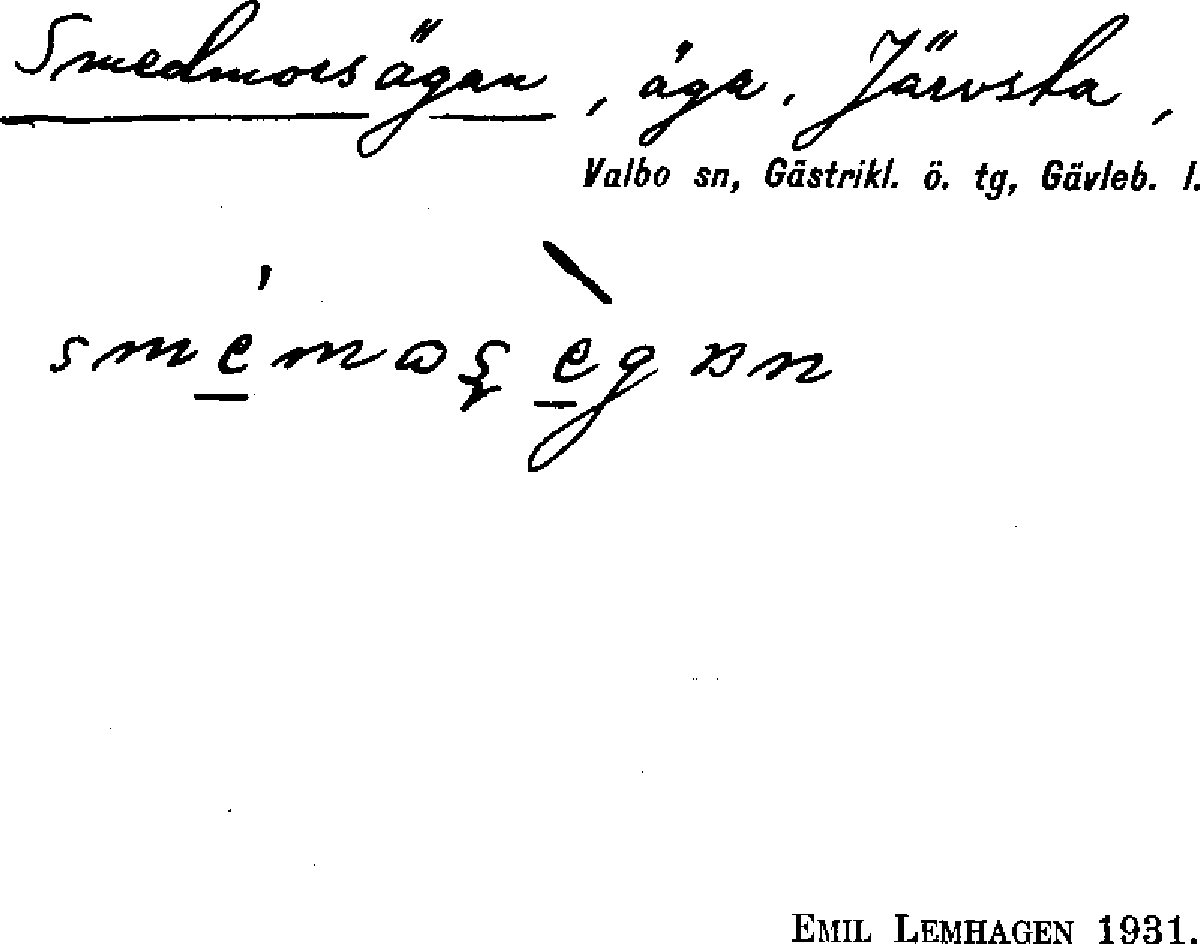 Smedmorsägan, äga, Järvsta,
Valbo sn, Gästrikl. ö. tg, Gävleb. l.
EMIL LEMHAGEN 1931.